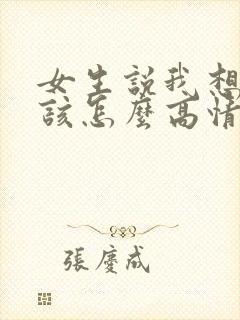 女生説我想
該怎麼高情
張慶成